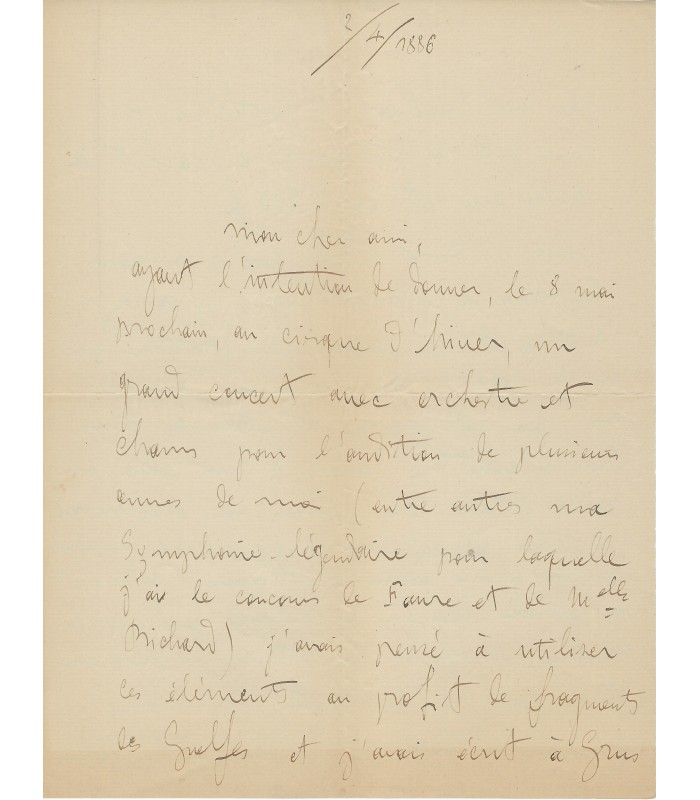 2/4/1886
mon cher ami,
ayant l'intention de donner, le 8 mai
prochain, au cirque d'hiver, un
grand concert avec orchestre et
chœurs pour l'audition de plusieurs
œuvres de moi (entre autres ma
Symphonie légendaire pour laquelle
j'ai le concours de Faure et de Melle
Richard) j'avais pensé à utiliser
ces éléments au profit de fragments
des Guelfes et j'avais écrit à Grus